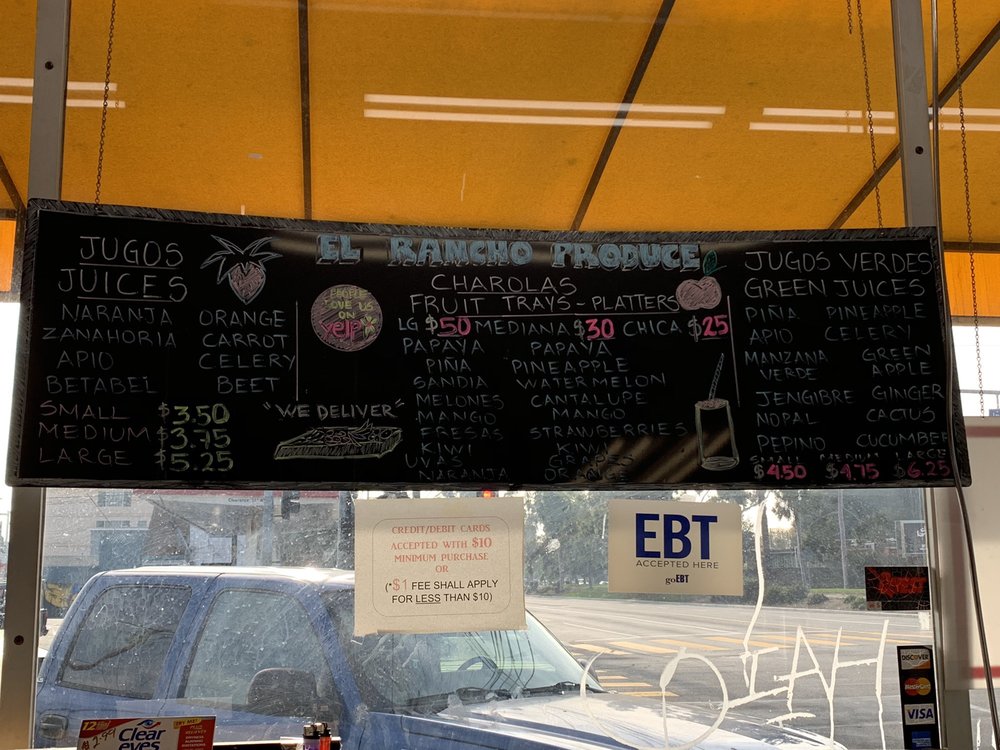 EL RANCHO PRODUCE
JUGOS
JUICES
NARANJA ORANGE
ZANAHORIA CARROT
APIO CELERY
BETABEL BEET
SMALL $3.50
MEDIUM $3.75
LARGE $5.25
PEOPLE
LOVE US
ON
yelp
"WE DELIVER"
CHAROLAS
FRUIT TRAYS - PLATTERS
LG $50 MEDIANA $30 CHICA $25
PAPAYA PAPAYA
PIÑA PINEAPPLE
SANDIA WATERMELON
MELONES CANTALUPE
MANGO MANGO
FRESAS STRAWBERRIES
KIWI KIWI
UVAS
NARANJA
JUGOS VERDES
GREEN JUICES
PIÑA PINEAPPLE
APIO CELERY
MANZANA VERDE GREEN APPLE
JENGIBRE GINGER
NOPAL CACTUS
PEPINO CUCUMBER
SMALL MEDIUM LARGE
$4.50 $4.75 $6.25
CREDIT/DEBIT CARDS
ACCEPTED WITH $10
MINIMUM PURCHASE
OR
(*$1 FEE SHALL APPLY
FOR LESS THAN $10)
EBT
ACCEPTED HERE
goEBT
DISCOVER
MasterCard
VISA
12
Clear
eyes